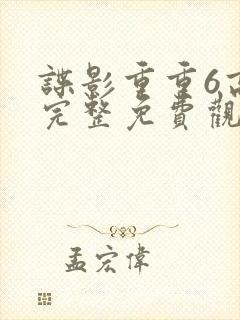 諜影重重6高
完整免費觀
孟宏偉